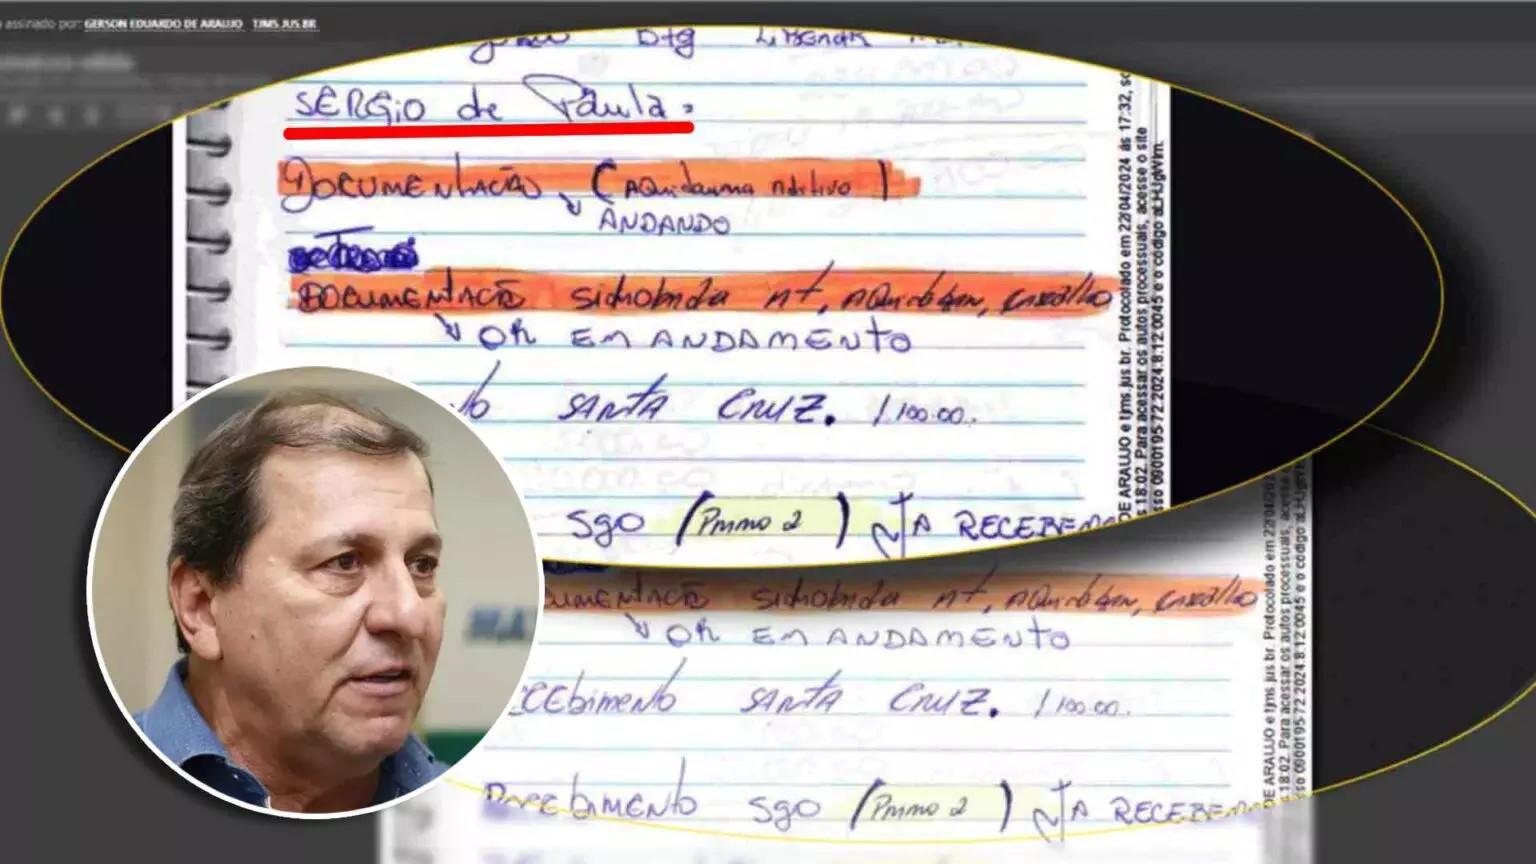 assinado por: GERSON EDUARDO DE ARAUJO TJMS.JUS.BR
Dtg
SERGiO de Paula:
DOCUMENTAÇÃO (AQuidauana Aditivo)
ANDANDO
DOCUMENTAÇÃO sidrolandia
OK EM ANDAMENTO
SANTA CRUZ. 1.100.00.
Sgo (Pmmo 2) A RECEBEMO
DE ARAUJO e tjms.jus.br. Protocolado em 22/04/2024 às 17:32, so
18:02. Para acessar os autos processuais, acesse o site
sso 0900195-72.2024.8.12.0045 e o código aLHJgWim.
CUMENTAÇÃO sidrolandia
OK EM ANDAMENTO
CEbimento SANTA CRUZ. 1.100.00.
RecEbimento Sgo (Pmmo 2) A RECEBEM
DE ARAUJO e tjms.jus.br. Protocolado em 22/04/20
18:02. Para acessar os autos processuais, acesse
sso 0900195-72.2024.8.12.0045 e o código